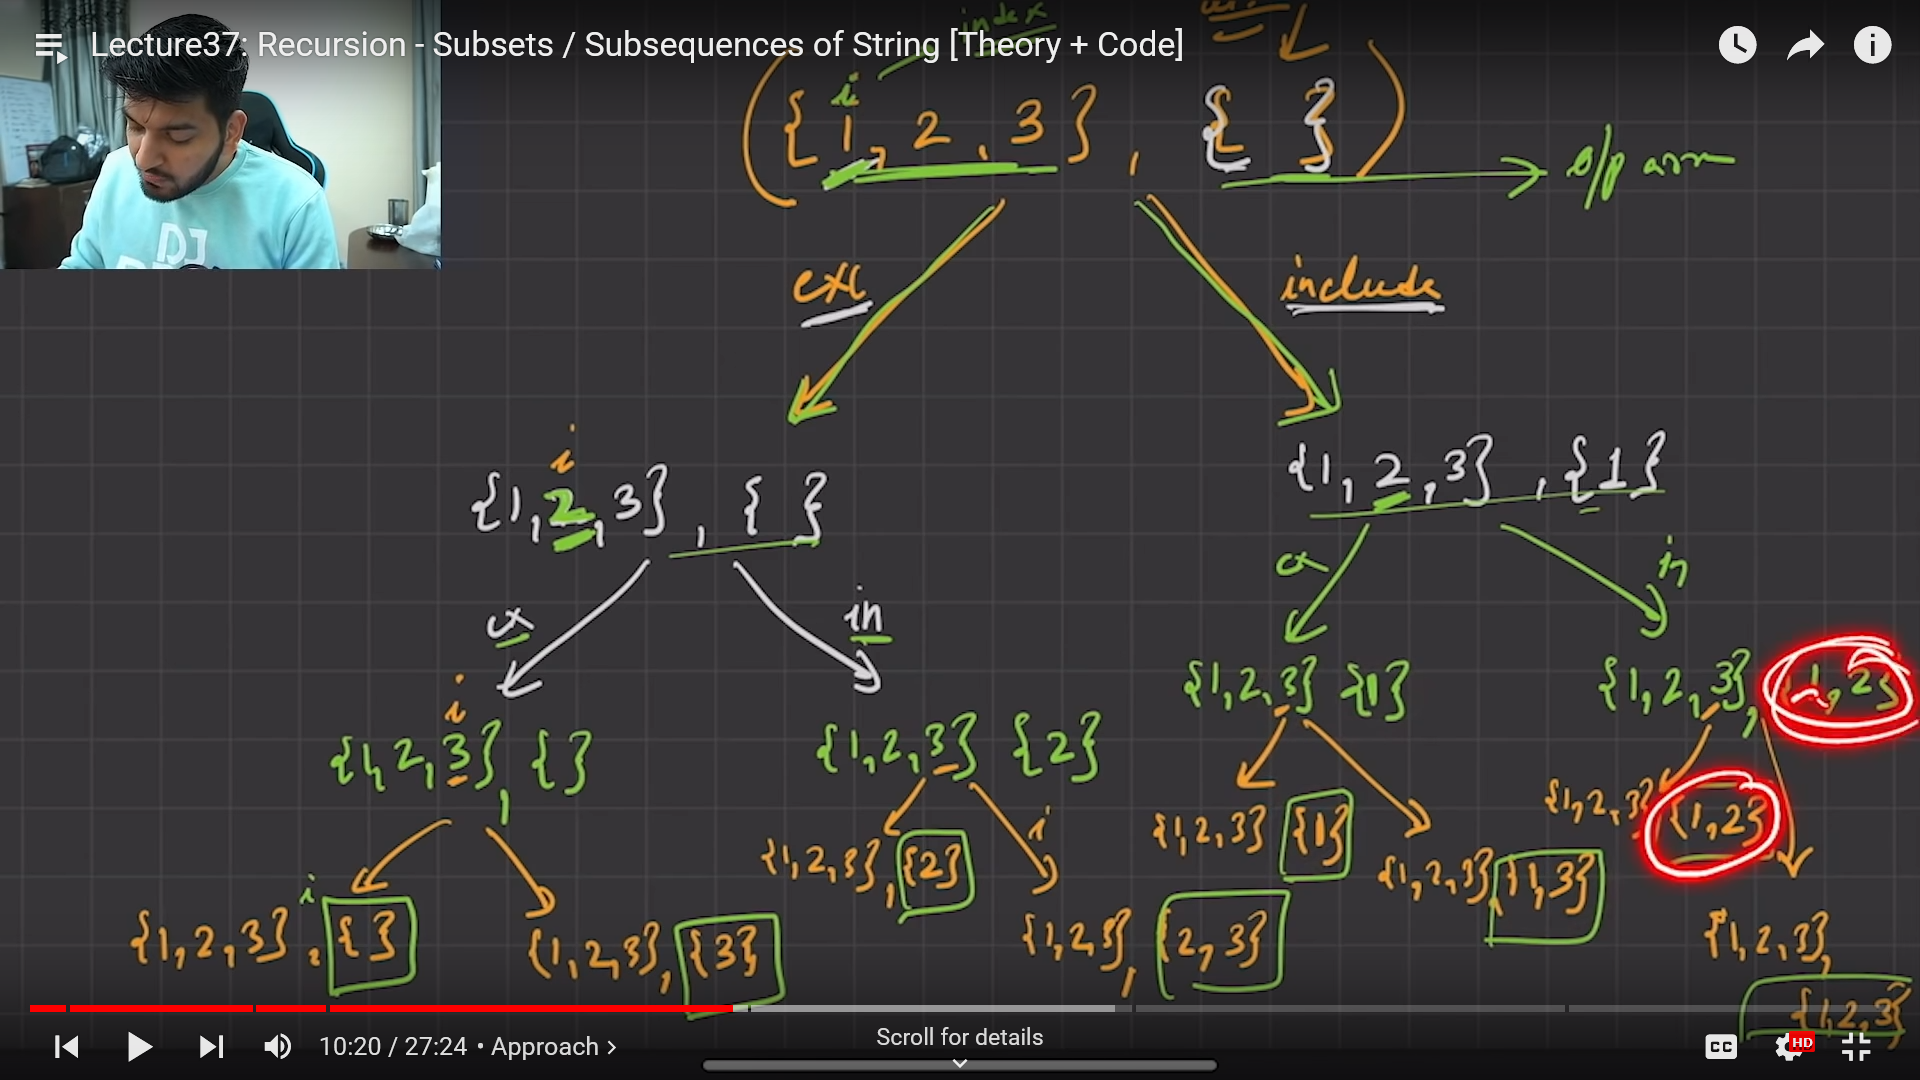 Lecture37: Recursion - Subsets / Subsequences of String [Theory + Code]
index
i
{1, 2, 3}, { }
o/p arr
exc
include
i
{1, 2, 3}, { }
{1, 2, 3}, {1}
ex
in
ex
in
i
{1, 2, 3}, { }
{1, 2, 3} {2}
{1, 2, 3} {1}
{1, 2, 3}, {1, 2}
i
{1, 2, 3}, { }
{1, 2, 3}, {3}
{1, 2, 3}, {2}
i
{1, 2, 3}, {2, 3}
{1, 2, 3} {1}
{1, 2, 3}, {1, 3}
{1, 2, 3} {1, 2}
{1, 2, 3},
{1, 2, 3}
DJ
10:20 / 27:24 • Approach >
Scroll for details
CC
HD